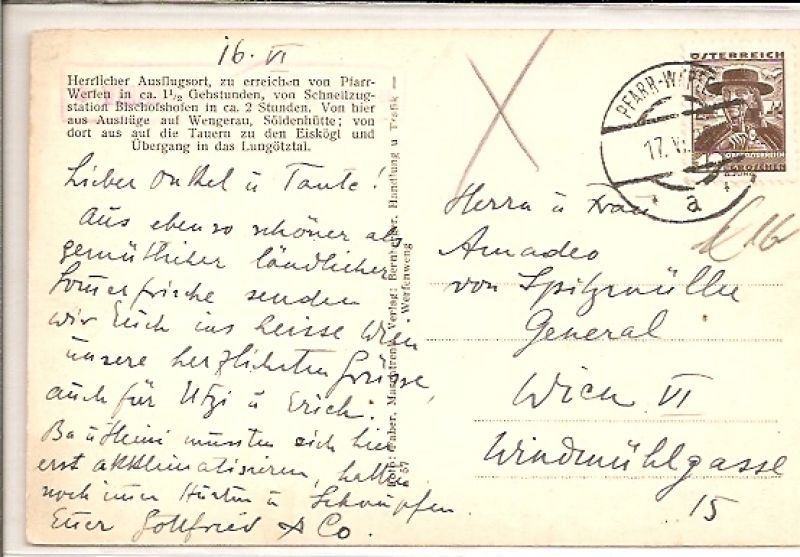 16. VI
Herrlicher Ausflugsort, zu erreichen von Pfarr-
Werfen in ca. 1½ Gehstunden, von Schnellzug-
station Bischofshofen in ca. 2 Stunden. Von hier
aus Ausflüge auf Wengerau, Söldenhütte; von
dort aus auf die Tauern zu den Eiskögl und
Übergang in das Lungötztal.
Lieber Onkel u Tante!
Aus ebenso schöner als
gemütlicher ländlicher
Sommerfrische senden
wir Euch ins heisse Wien
unsere herzlichsten Grüsse,
auch für Utzi u Erich.
mussten sich hier
erst akklimatisieren, hatten
noch immer Husten u Schnupfen.
Euer Gottfried & Co.
Verlag: Handlung u Trafik —
- Werfenweng
ÖSTERREICH
PFARR-WERFEN
17. VI.
OBERÖSTERREICH
12 GROSCHEN
a
Herrn u Frau
Amadeo
von Spitzmüller
General
Wien VI
Windmühlgasse
15